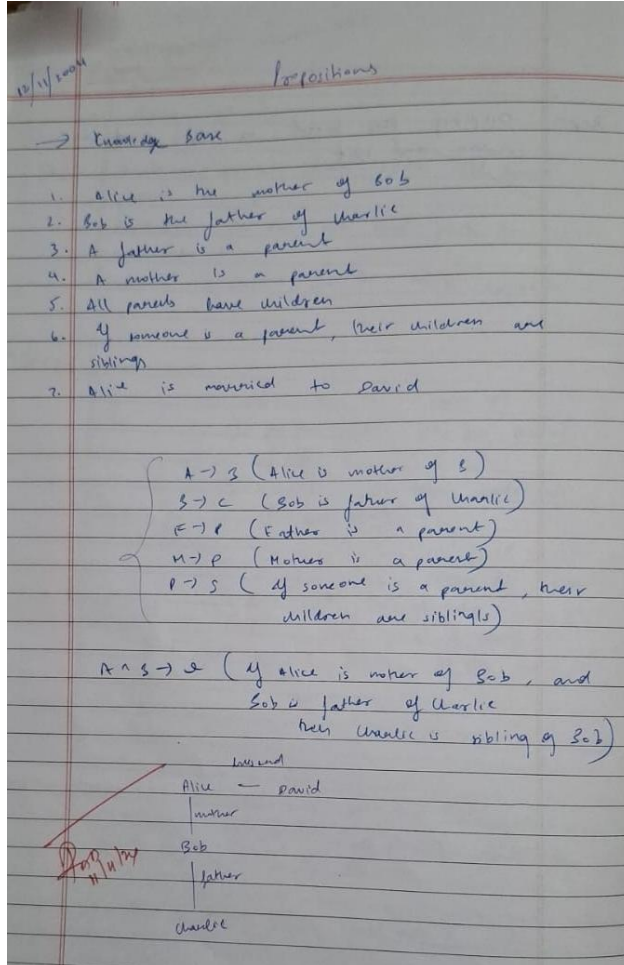 12/11/2024
Propositions
→ Knowledge Base
1. Alice is the mother of Bob
2. Bob is the father of Charlie
3. A father is a parent
4. A mother is a parent
5. All parents have children
6. If someone is a parent, their children are
siblings
7. Alice is married to David
A → B (Alice is mother of B)
B → C (Bob is father of Charlie)
F → P (Father is a parent)
M → P (Mother is a parent)
P → S (If someone is a parent, their
children are siblings)
A ^ B → (If Alice is mother of Bob, and
Bob is father of Charlie
then Charlie is sibling of Bob)
husband
Alice — David
mother
Bob
father
Charlie